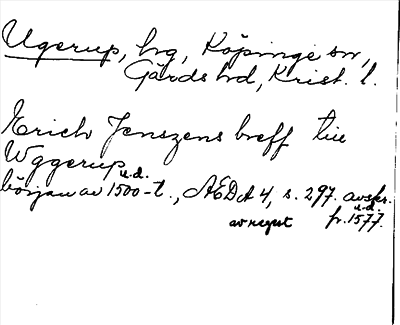 Ugerup, hg, Köpinge sn,
Gärds hd, Krist. l.
Erich Jenszens breff till
Wggerup
u.d.
början av 1500-t., AEDA 4, s. 297. avskr.
u.d.
av regest fr. 1577.